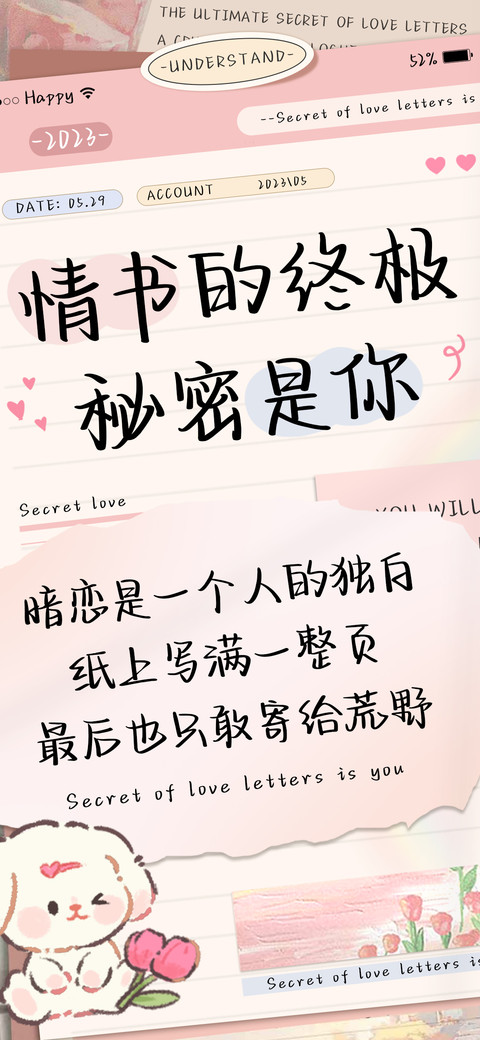 THE ULTIMATE SECRET OF LOVE LETTERS
-UNDERSTAND-
52%
Happy
-2023-
--Secret of love letters is
DATE: 05.29
ACCOUNT 2023\05
情书的终极
秘密是你
Secret love
YOU WILL
暗恋是一个人的独白
纸上写满一整页
最后也只敢寄给荒野
Secret of love letters is you
Secret of love letters is